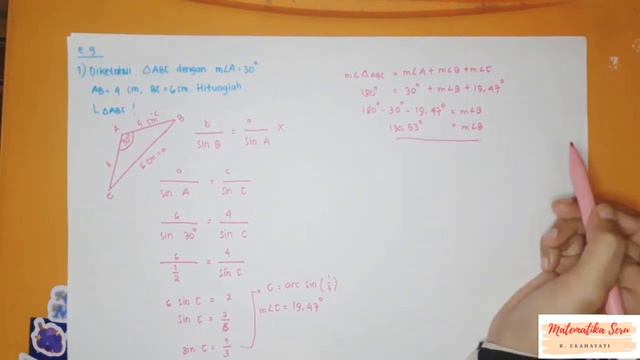 e.g
1) Diketahui △ABC dengan m∠A = 30°
AB = 4 cm, BC = 6 cm Hitunglah
L △ABC !
A
4 cm = c
B
6 cm = a
b
C
b / sin B = a / sin A X
a / sin A = c / sin C
6 / sin 30° = 4 / sin C
6 / 1/2 = 4 / sin C
6 sin C = 2
sin C = 2/6
sin C = 1/3
C = arc sin (1/3)
m∠C = 19,47°
m∠ △ABC = m∠A + m∠B + m∠C
180° = 30° + m∠B + 19,47°
180° - 30° - 19,47° = m∠B
130,53° = m∠B
Matematika Seru
R. EKAHAYATI